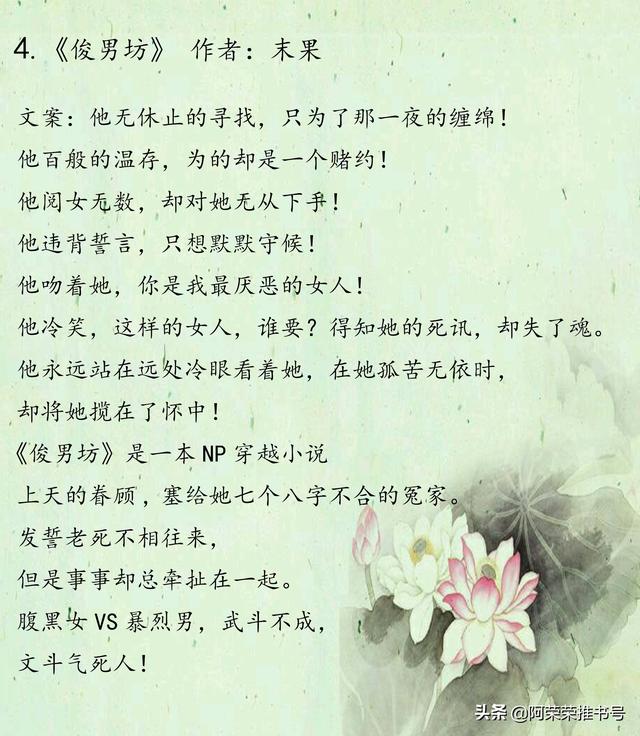 4.《俊男坊》 作者：末果
文案：他无休止的寻找，只为了那一夜的缠绵！
他百般的温存，为的却是一个赌约！
他阅女无数，却对她无从下手！
他违背誓言，只想默默守候！
他吻着她，你是我最厌恶的女人！
他冷笑，这样的女人，谁要？得知她的死讯，却失了魂。
他永远站在远处冷眼看着她，在她孤苦无依时，
却将她揽在了怀中！
《俊男坊》是一本NP穿越小说
上天的眷顾，塞给她七个八字不合的冤家。
发誓老死不相往来，
但是事事却总牵扯在一起。
腹黑女VS暴烈男，武斗不成，
文斗气死人！
头条 @阿荣荣推书号